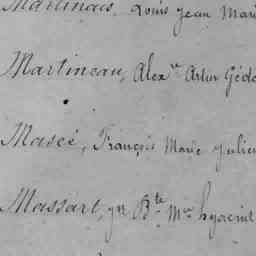 Martinais, Louis Jean Marie
Martineau, Alex.re Artur Gédé
Mascé, François Marie Julien
Massart, Bte Mie hyacint